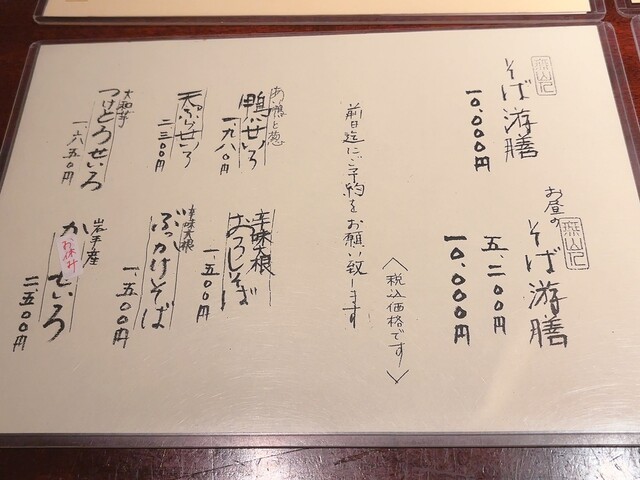 そば游膳
一〇、〇〇〇円
お昼の
そば游膳
五、二〇〇円
一〇、〇〇〇円
〈税込価格です〉
前日迄にご予約をお願い致します
あい鴨と葱
鴨せいろ
一、九八〇円
辛味大根
おろしそば
一、五〇〇円
天ぷらせいろ
二三〇〇円
辛味大根
ぶっかけそば
一、五〇〇円
大和芋
つけとろせいろ
一六五〇円
岩手産
か
お休み
せいろ
二、五〇〇円